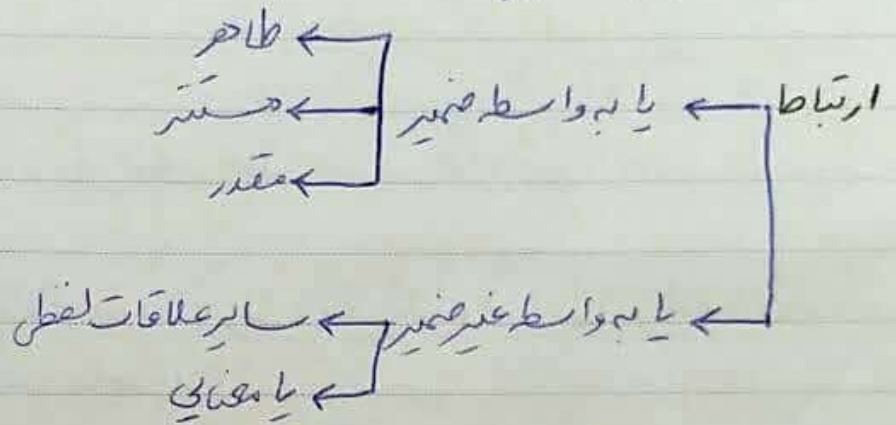 ظاهر
ارتباط یا به واسطه ضمیر مستتر
مقدر
یا به واسطه غیر ضمیر سایر علاقات لفظی
یا معنایی